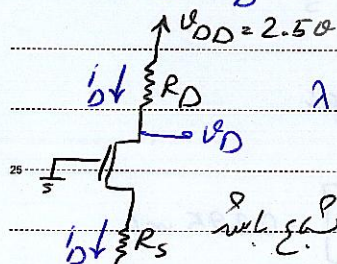 V_DD = 2.5v
i_D ↓ R_D λ
v_D
25
i_D ↓ R_S